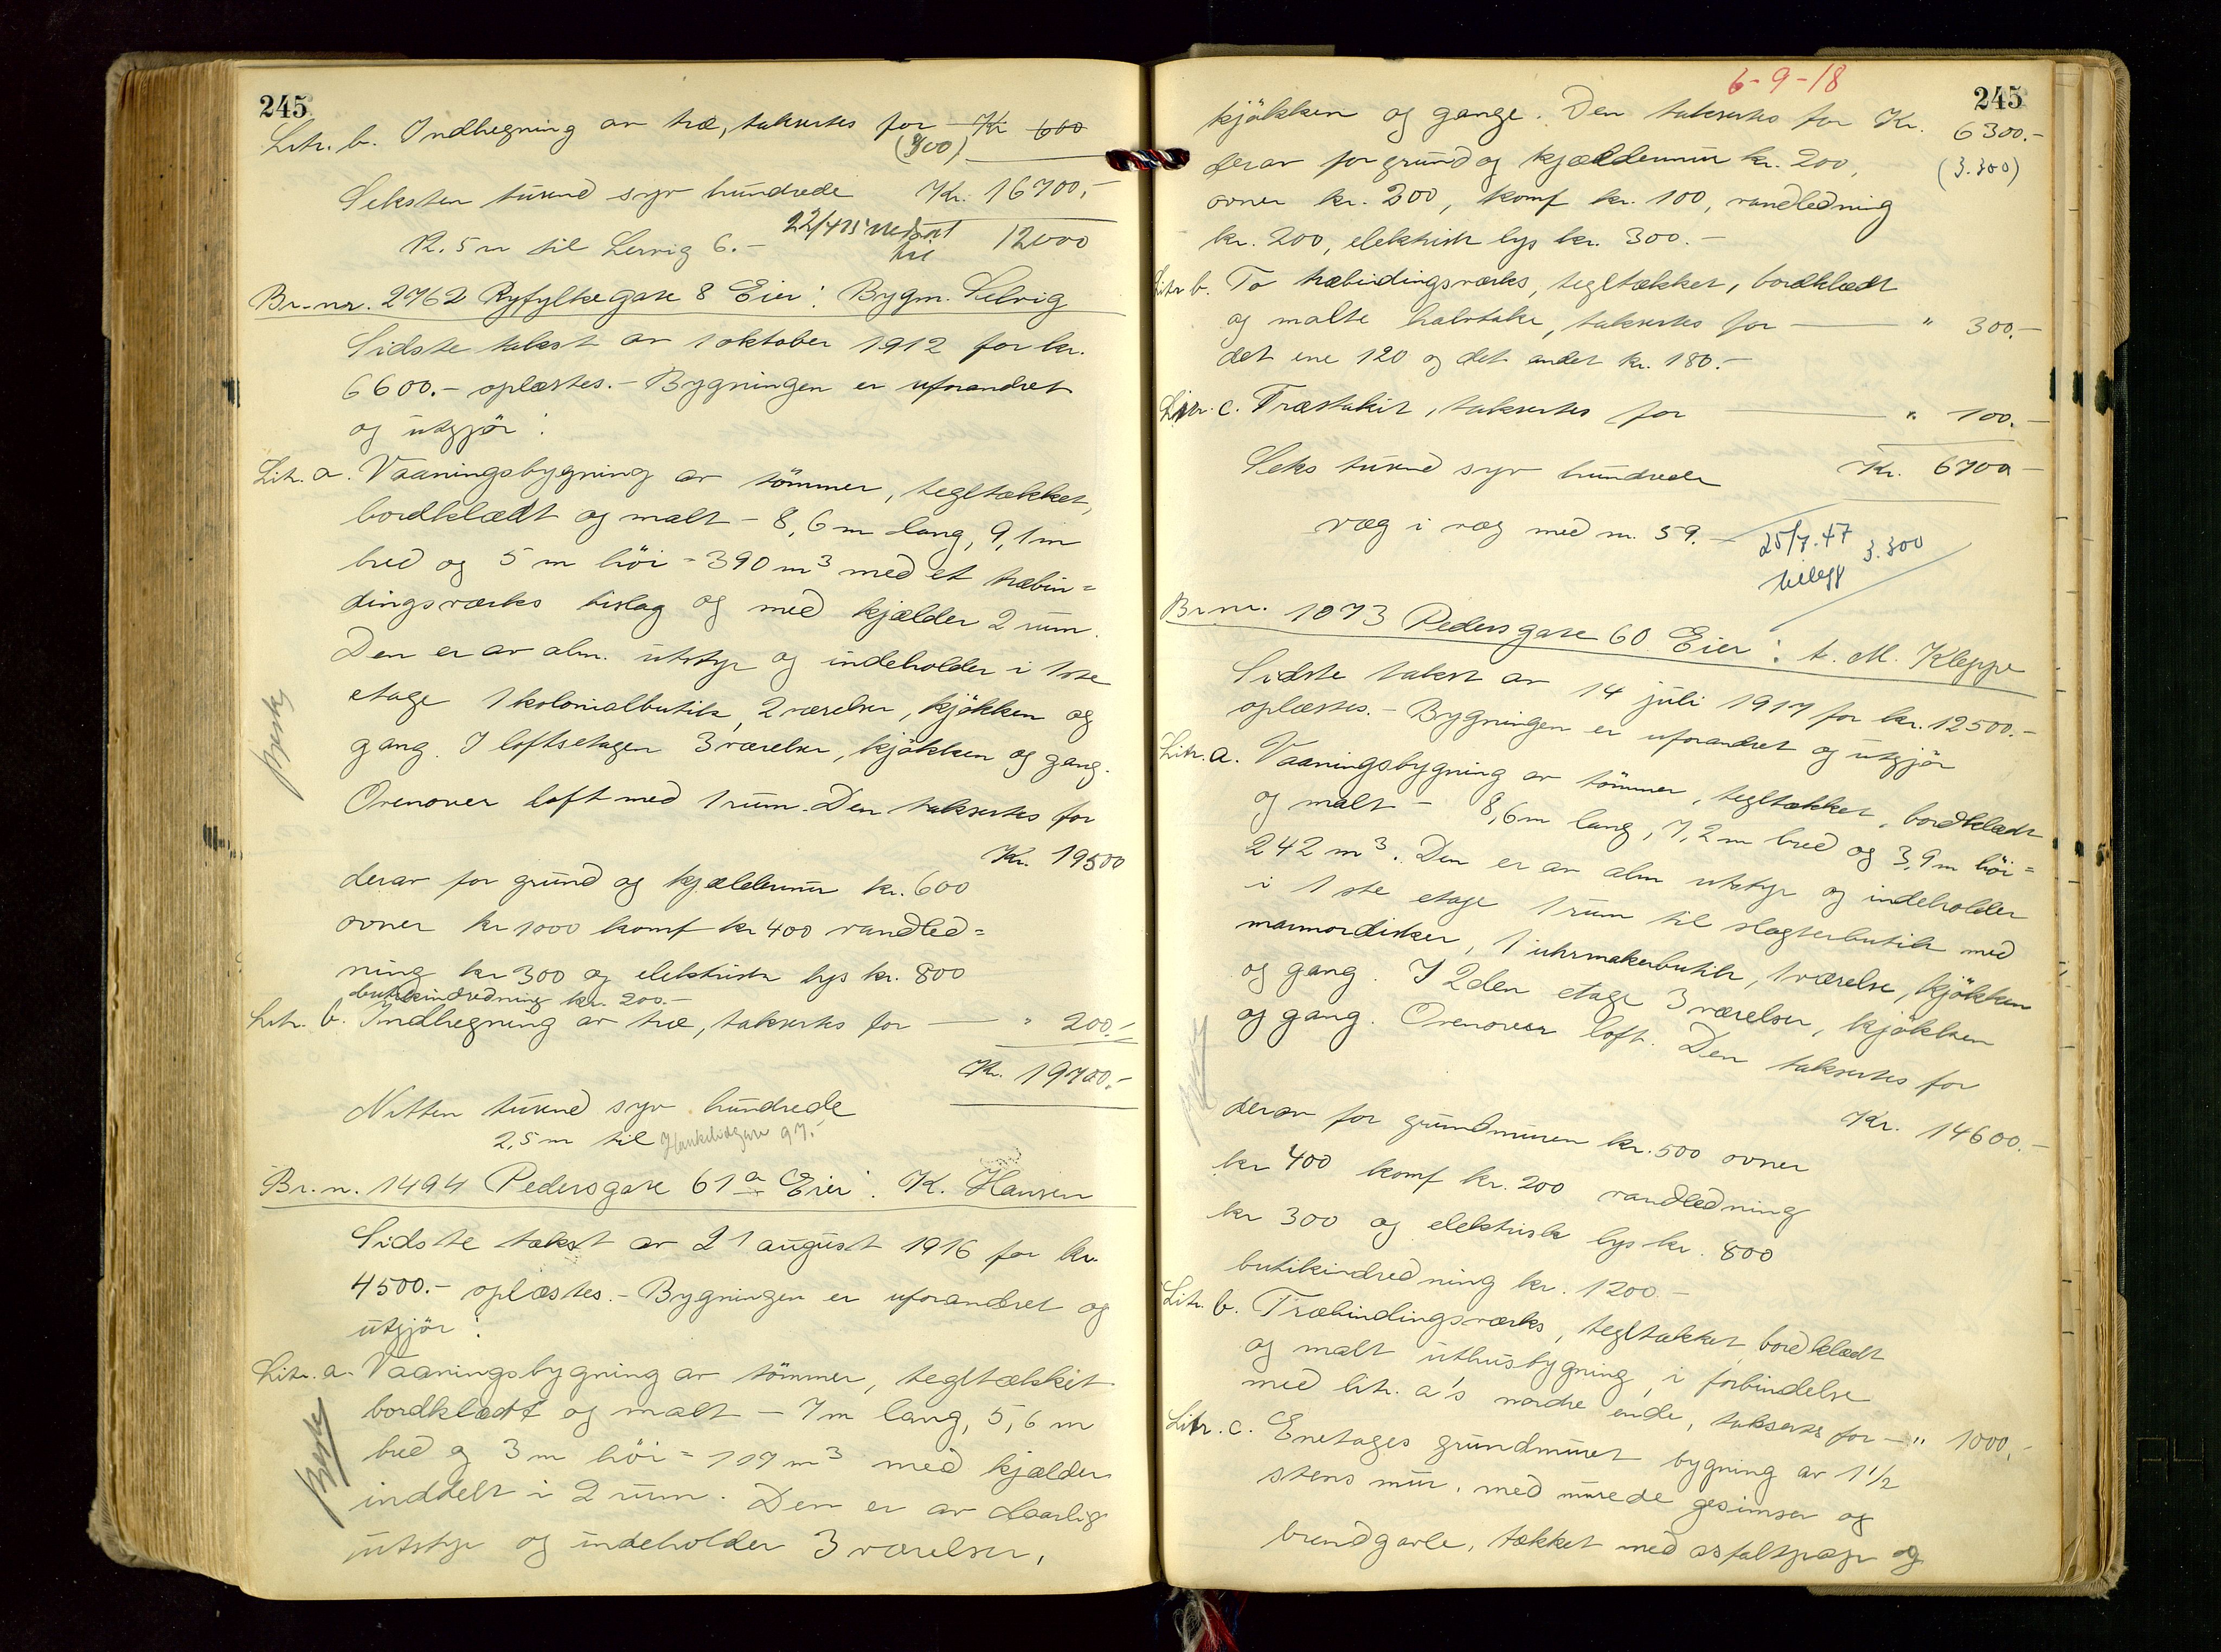 245
Litr. b. Indhegning av træ, taksertes for Kr 600
(700)
Seksten tusend syv hundrede Kr. 16700,-
22/4 25 nedsat til 12000
Kl. 5 m til Lervig 6.-
Br.-nr. 2762 Ryfylkegate 8 Eier: Bygm. Selvig
Sidste takst av 1 oktober 1912 for kr.
6600.- oplæstes.- Bygningen er uforandret
og utgjör:
Lit. a. Vaaningsbygning av tömmer, tegltækket,
bordklædt og malt - 8,6 m lang, 9,1 m
bred og 5 m höi = 390 m3 med et træbin=
dingsværks bislag og med kjælder 2 rum.
Den er av alm. utstyr og indeholder i 1ste
etage 1 kolonialbutik, 2 værelser, kjökken og
gang. I loftsetagen 3 værelser, kjökken og gang.
Ovenover loft med 1 rum. Den taksertes for
Kr. 19500
derav for grund og kjældermur kr. 600
ovner kr 1000 komf kr 400 vandled=
ning kr 300 og elektrisk lys kr. 800
butikindredning kr. 200.-
Litr. b. Indhegning av træ, taksertes for — " 200.-
Kr. 19700.-
Nitten tusend syv hundrede
2,5 m til 97.-
Br.n. 1494 Pedersgate 61a Eier: K. Hansen
Sidste takst av 21 august 1916 for kr.
4500.- oplæstes.- Bygningen er uforandret og
utgjör:
Litr. a. Vaaningsbygning av tömmer, tegltækket
bordklædt og malt - 7 m lang, 5,6 m
bred og 3 m höi = 117 m3 med kjælder
inddelt i 2 rum. Den er av daarlig
utstyr og indeholder 3 værelser,
6-9-18
245
kjökken og gange. Den taksertes for Kr. 6300.-
(3.300)
derav for grund og kjældermur kr. 200,
ovner kr. 200, komf kr. 100, vandledning
kr. 200, elektrisk lys kr. 300.-
Litr b. To træbindingsværks, tegltækket, bordklædt
og malte halvtake, taksertes for — " 300.-
det ene 120 og det andet kr. 180.-
Litr. c. Træstakit, taksertes for — " 100.-
Seks tusend syv hundrede Kr. 6700-
væg i væg med nr. 59.-
25/7.47 3.300
tillegg
Br.nr. 1073 Pedersgate 60 Eier: t. M. Kleppe
Sidste takst av 14 juli 1917 for kr. 12500.-
oplæstes.- Bygningen er uforandret og utgjör
Litr. a. Vaaningsbygning av tömmer, tegltækket, bordklædt
og malt - 8,6 m lang, 7,2 m bred og 3,9 m höi =
242 m3. Den er av alm utstyr og indeholder
i 1ste etage 1 rum til slagterbutik med
marmordisker, 1 uhrmakerbutik, 1 værelse, kjökken
og gang. I 2den etage 3 værelser, kjökken
og gang. Ovenover loft. Den taksertes for
Kr. 14600.-
derav for grundmuren kr. 500 ovner
kr 400 komf kr. 200 vandledning
kr 300 og elektrisk lys kr. 800
butikindredning kr. 1200.-
Litr. b. Træbindingsværks, tegltækket, bordklædt
og malt uthusbygning, i forbindelse
med litr. a's nordre ende, taksertes for — " 1000,-
Litr. c. Enetages grundmuret bygning av 1 1/2
stens mur, med murede gesimser og
brandgavle, tækket med asfaltpap og